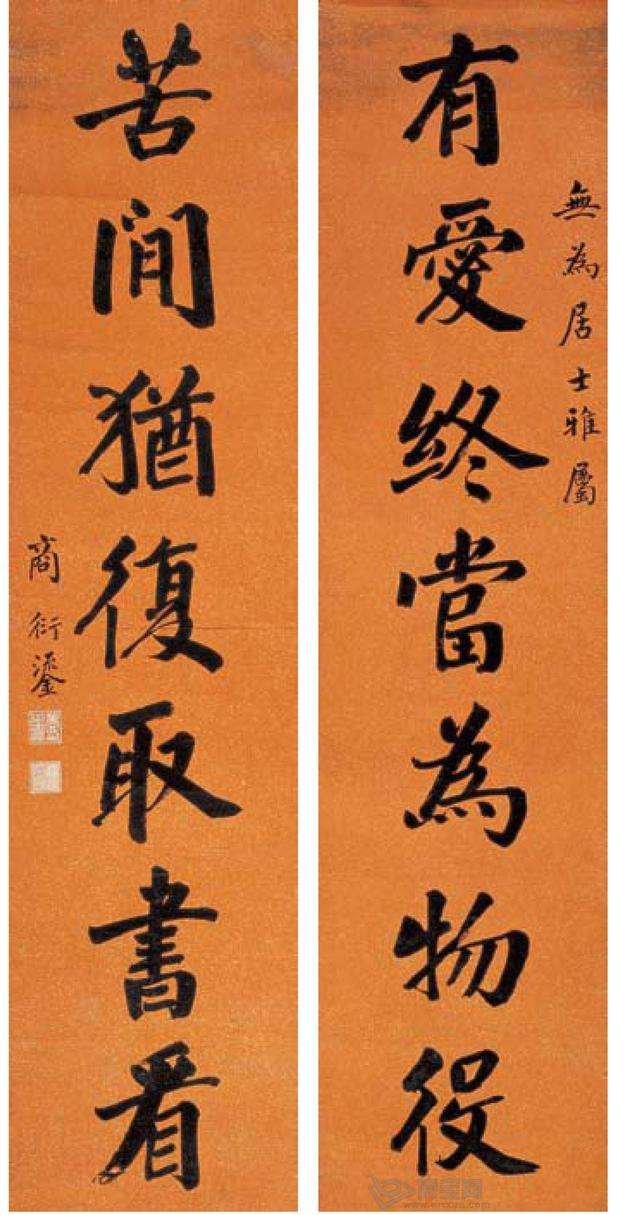 無為居士雅屬
有愛終當為物役
苦閒猶復取書看
商衍鎏